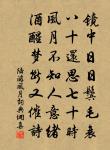 鏡中日日鬢毛衰
八十還思七十時
風月不知人意緒
酒醒夢斷又催詩
陸游風月詞典網集